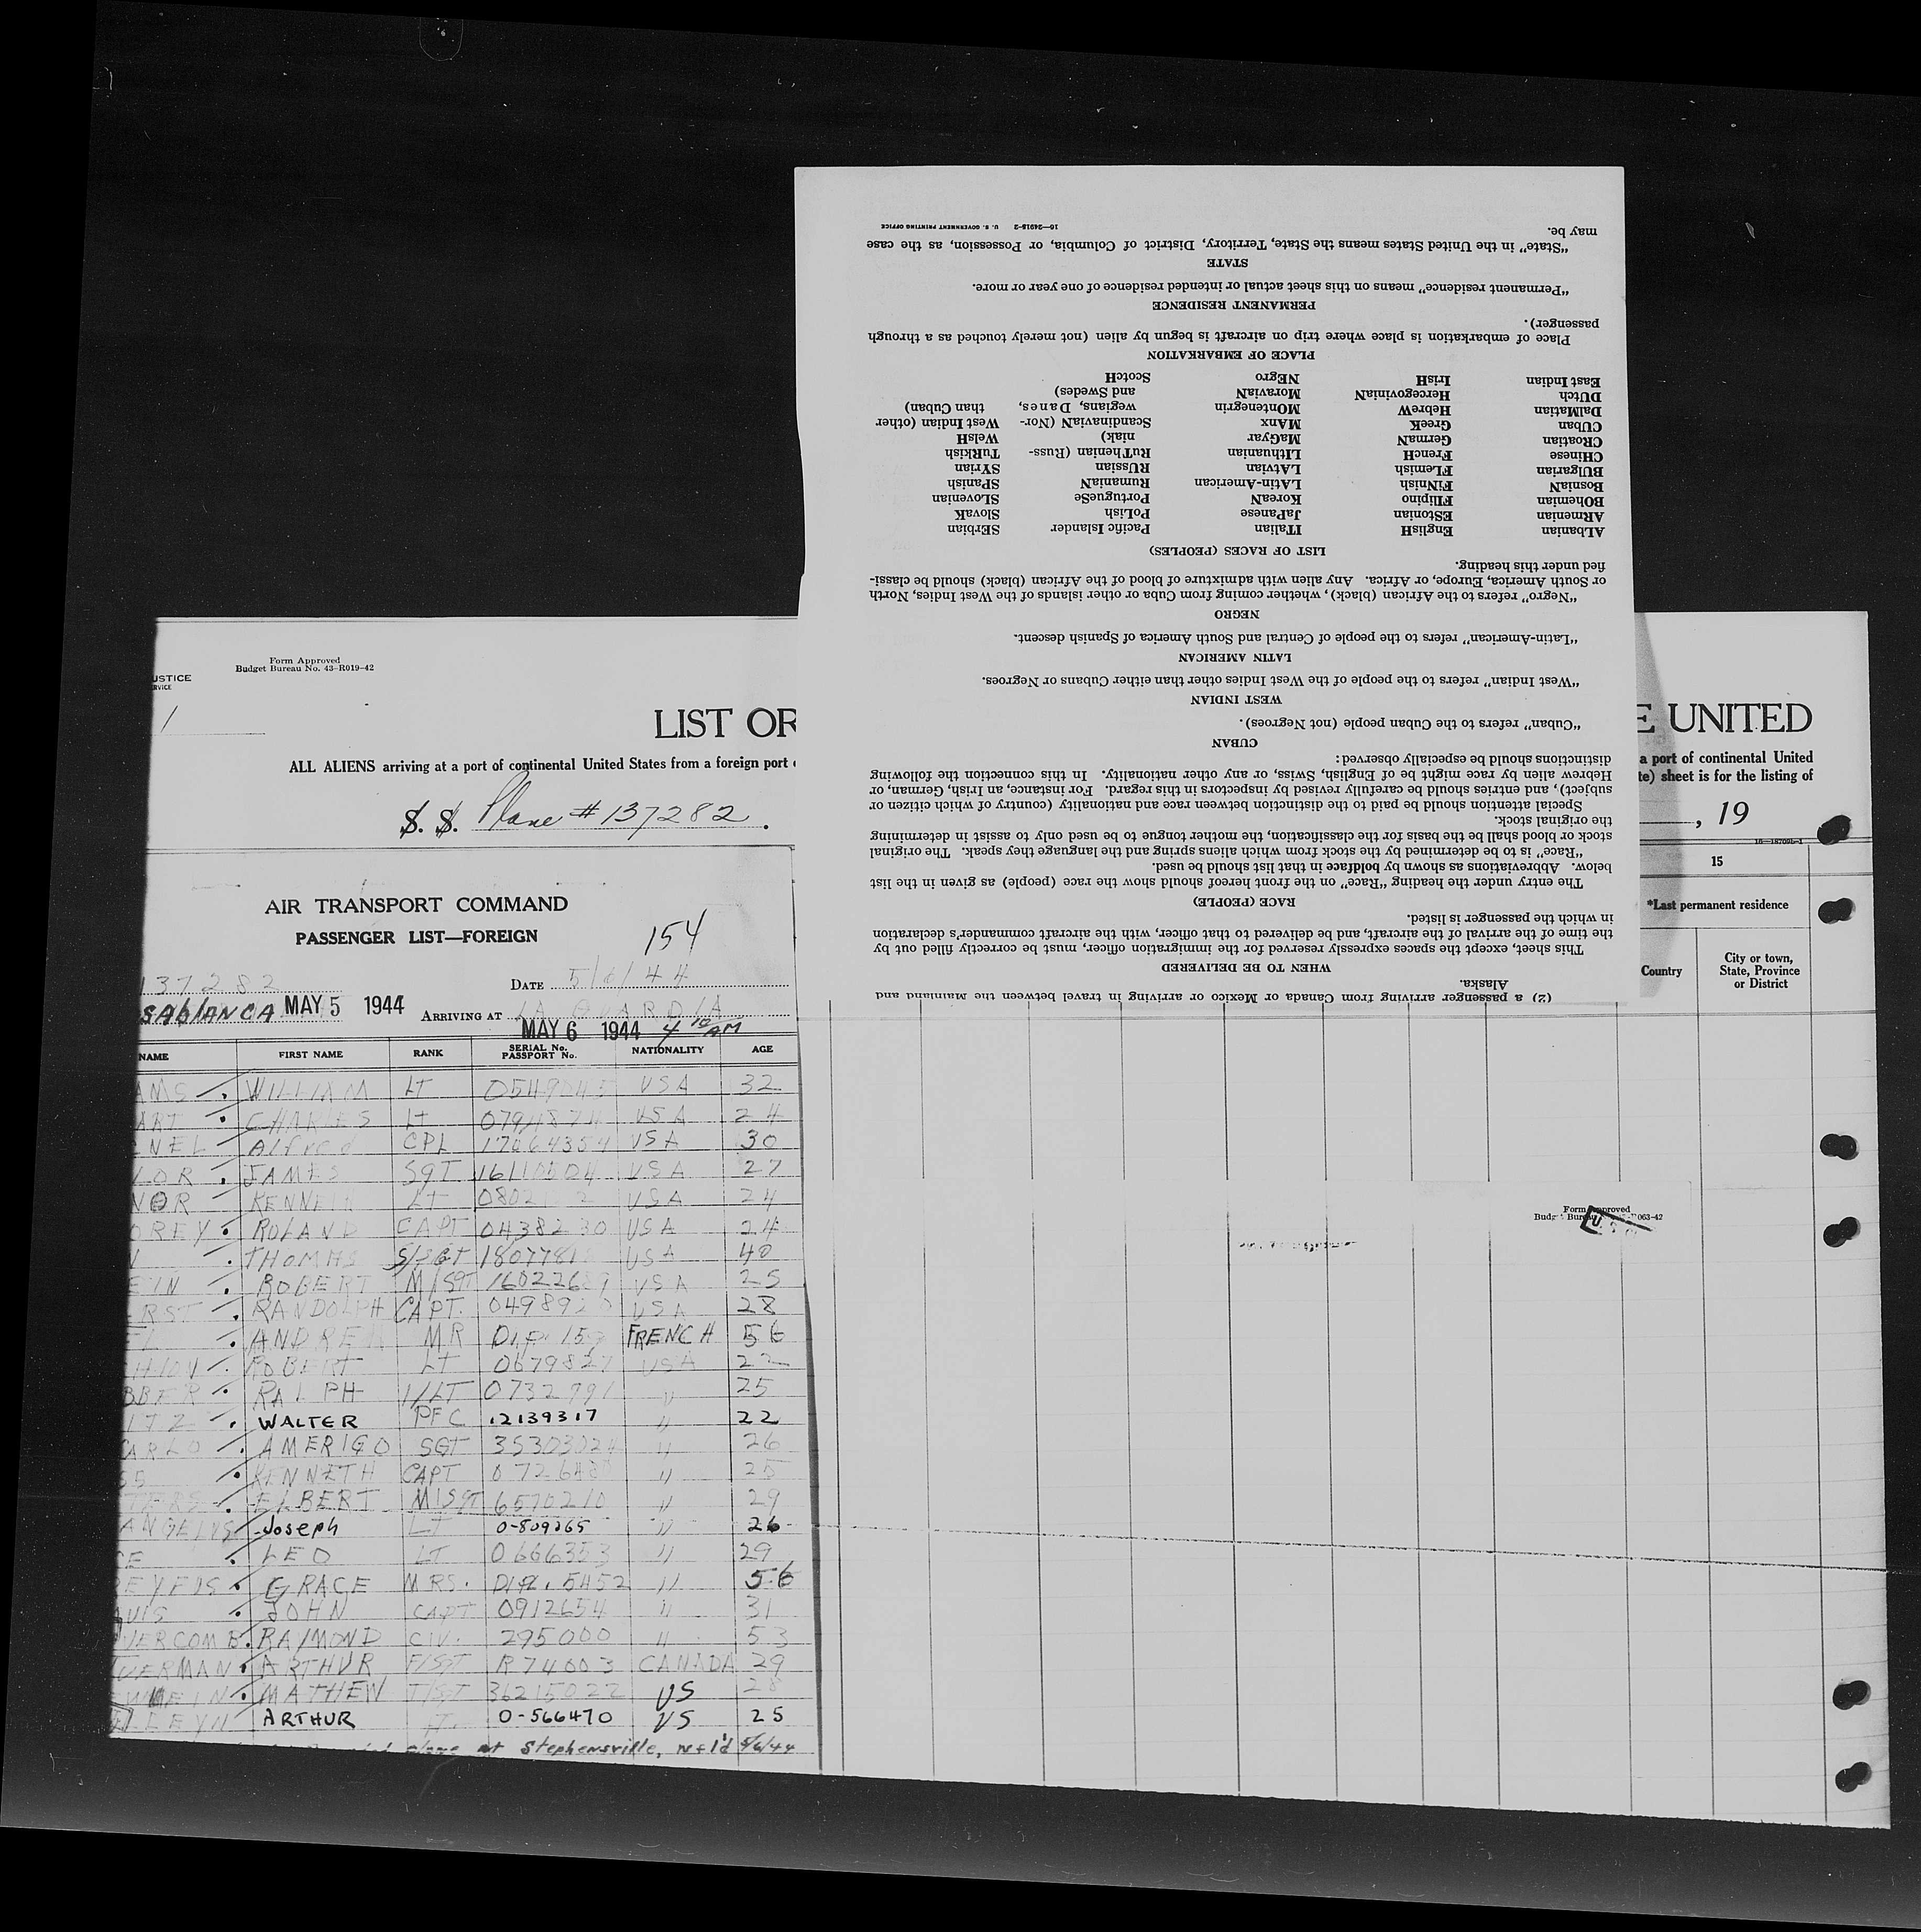 Form Approved
Budget Bureau No. 43-R019-42
USTICE
RVICE
1
LIST OR
ALL ALIENS arriving at a port of continental United States from a foreign port
S. S. Plane # 137282
AIR TRANSPORT COMMAND
PASSENGER LIST—FOREIGN
154
137282
DATE 5/6/44
SABlANCA MAY 5 1944 ARRIVING AT LA GUARDIA
MAY 6 1944 4 10 AM
NAME FIRST NAME RANK SERIAL No. PASSPORT No. NATIONALITY AGE
AMS WILLIAM LT USA 32
ART CHARLES LT USA 24
NEL Alfred CPL 17064354 USA 30
LOR JAMES SGT USA 27
NOR KENNETH LT USA 24
OREY ROLAND CAPT USA 24
THOMAS S/SGT USA 40
EIN ROBERT M/SGT USA 25
RST RANDOLPH CAPT. USA 28
MR FRENCH 56
ROBERT LT 0679827 USA 22
BBER RALPH 1/LT 0732991 " 25
ITZ WALTER PFC 12139317 " 22
CARLO AMERIGO SGT 35303024 " 26
KENNETH CAPT " 25
ELBERT M/SGT 6570210 " 29
ANGELUS Joseph LT 0-809265 " 26
LEO LT 0666353 " 29
GRACE MRS. DIPL. 5452 " 56
JOHN CAPT 0912654 " 31
VERCOMB RAYMOND CIV. 295000 " 53
VERMAN ARTHUR F/SGT R74003 CANADA 29
WEIN MATHEW T/SGT 36215022 US 28
LEEYN ARTHUR LT. 0-566470 US 25
plane at Stephensville, Nfl'd 5/6/44
E UNITED
a port of continental United
te) sheet is for the listing of
, 19
16—18709b-1
15
*Last permanent residence
Country
City or town, State, Province or District
Form Approved
(2) a passenger arriving from Canada or Mexico or arriving in travel between the Mainland and
Alaska.
WHEN TO BE DELIVERED
This sheet, except the spaces expressly reserved for the immigration officer, must be correctly filled out by
the time of the arrival of the aircraft, and be delivered to that officer, with the aircraft commander's declaration
in which the passenger is listed.
RACE (PEOPLE)
The entry under the heading "Race" on the front hereof should show the race (people) as given in the list
below. Abbreviations as shown by boldface in that list should be used.
"Race" is to be determined by the stock from which aliens spring and the language they speak. The original
stock or blood shall be the basis for the classification, the mother tongue to be used only to assist in determining
the original stock.
Special attention should be paid to the distinction between race and nationality (country of which citizen or
subject), and entries should be carefully revised by inspectors in this regard. For instance, an Irish, German, or
Hebrew alien by race might be of English, Swiss, or any other nationality. In this connection the following
distinctions should be especially observed:
CUBAN
"Cuban" refers to the Cuban people (not Negroes).
WEST INDIAN
"West Indian" refers to the people of the West Indies other than either Cubans or Negroes.
LATIN AMERICAN
"Latin-American" refers to the people of Central and South America of Spanish descent.
NEGRO
"Negro" refers to the African (black), whether coming from Cuba or other islands of the West Indies, North
or South America, Europe, or Africa. Any alien with admixture of blood of the African (black) should be classi-
fied under this heading.
LIST OF RACES (PEOPLES)
ALbanian EnglisH ITalian Pacific Islander SErbian
ARmenian EStonian JaPanese PoLish SlovaK
BOhemian FIlipino KoreaN PortugueSe SLovenian
BosniaN FiNnish LAtin-American RumaniaN SPanish
BUlgarian FLemish LAtvian RUssian SYrian
CHinese FrencH LIthuanian RuThenian (Russ- TuRkish
CRoatian GermaN MaGyar niak) WelsH
CUban GreeK MAnx ScandinaviaN (Nor- West Indian (other
DalMatian HebreW MOntenegrin wegians, Danes, than Cuban)
DUtch HercegoviniaN MoraviaN and Swedes)
East Indian IrisH NEgro ScotcH
PLACE OF EMBARKATION
Place of embarkation is place where trip on aircraft is begun by alien (not merely touched as a through
passenger).
PERMANENT RESIDENCE
"Permanent residence" means on this sheet actual or intended residence of one year or more.
STATE
"State" in the United States means the State, Territory, District of Columbia, or Possession, as the case
may be.
16—24915-2 U. S. GOVERNMENT PRINTING OFFICE